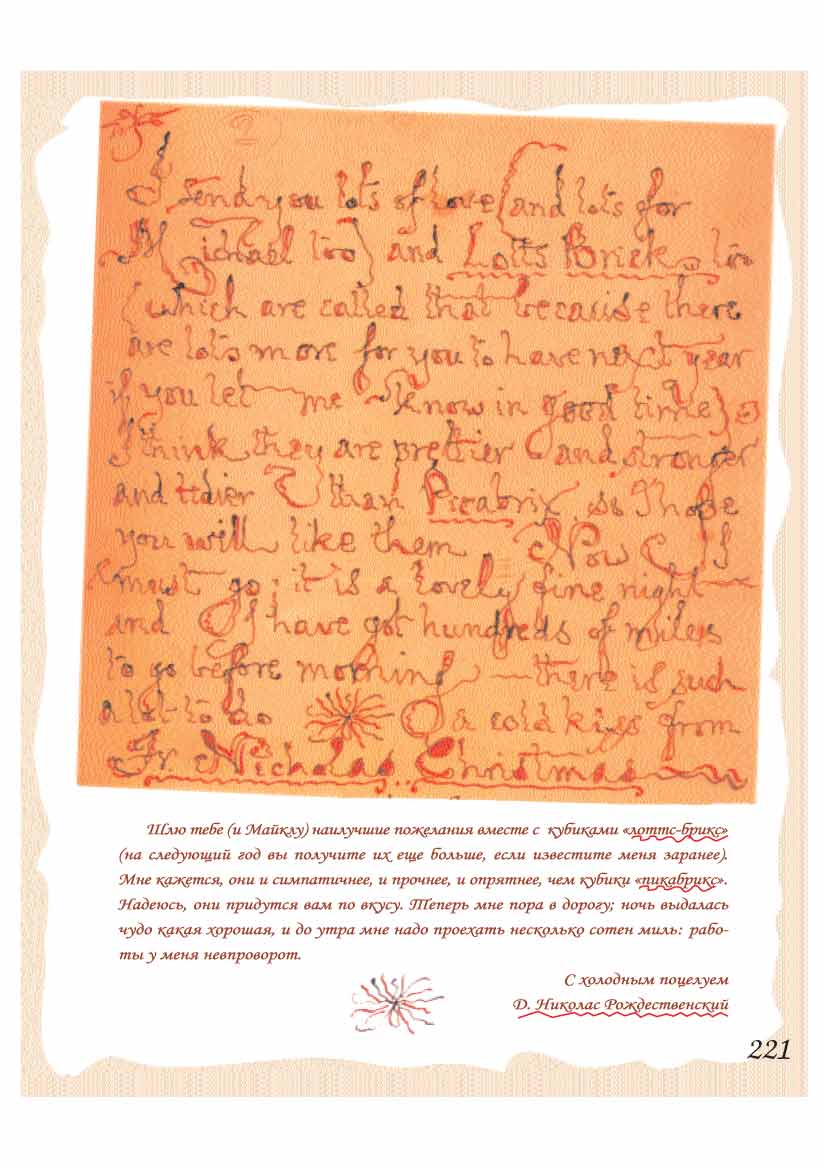 2
I send you lots of love (and lots for
Michael too) and Lotts Bricks too
(which are called that because there
are lots more for you to have next year
if you let me know in good time)
I think they are prettier and stronger
and tidier than Picabrix so I hope
you will like them. Now I
must go; it is a lovely fine night
and I have got hundreds of miles
to go before morning — there is such
a lot to do
a cold kiss from
Fr. Nicholas Christmas
Шлю тебе (и Майклу) наилучшие пожелания вместе с кубиками «лоттс-брикс»
(на следующий год вы получите их еще больше, если известите меня заранее).
Мне кажется, они и симпатичнее, и прочнее, и опрятнее, чем кубики «пикабрикс».
Надеюсь, они придутся вам по вкусу. Теперь мне пора в дорогу; ночь выдалась
чудо какая хорошая, и до утра мне надо проехать несколько сотен миль: рабо-
ты у меня невпроворот.
С холодным поцелуем
Д. Николас Рождественский
221